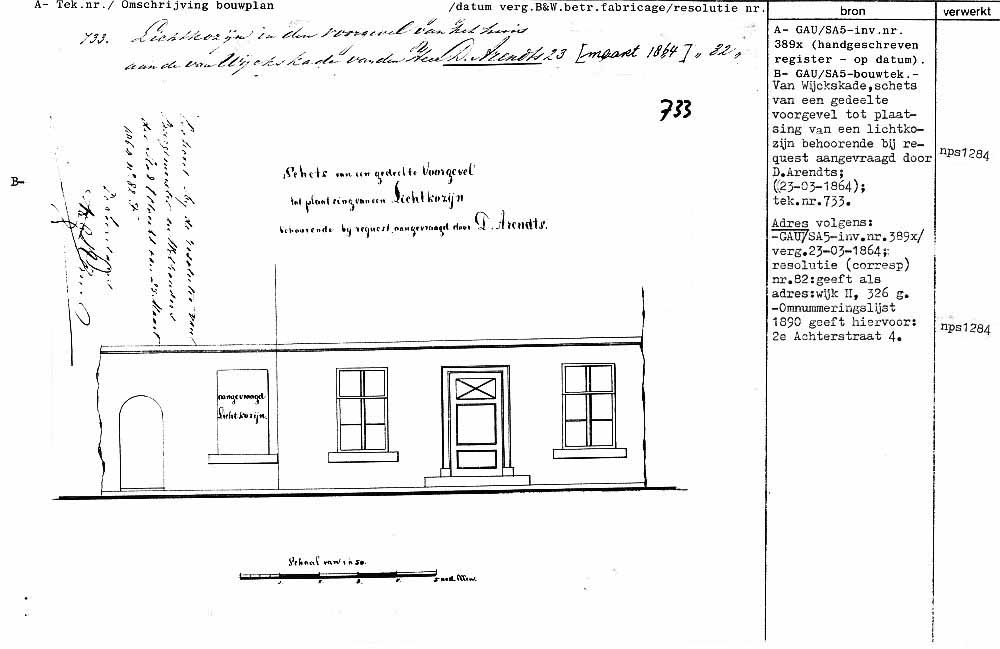 A- Tek.nr./ Omschrijving bouwplan /datum verg.B&W.betr.fabricage/resolutie nr.
bron
verwerkt
733. Lichtkozijn in den voorgevel van het huis
aan de van Wijckskade van den Heer D. Arendts 23 [maart 1864] „ 82 „
733
B-
Behoort bij de resolutie van
Burgemeester en Wethouders
der stad Utrecht van 23 Maart
1864 n° 82 F.
Schets van een gedeelte Voorgevel
tot plaatsing van een Lichtkozijn
behoorende bij request, aangevraagd door D. Arendts.
aangevraagd
Lichtkozijn.
Schaal van 1 à 50.
5 ned. Ellen.
A- GAU/SA5-inv.nr.
389x (handgeschreven
register - op datum).
B- GAU/SA5-bouwtek.-
Van Wijckskade,schets
van een gedeelte
voorgevel tot plaat-
sing van een lichtko-
zijn behoorende bij re-
quest aangevraagd door
D.Arendts;
(23-03-1864);
tek.nr.733.
nps1284
Adres volgens:
-GAU/SA5-inv.nr.389x/
verg.23-03-1864;
resolutie (corresp)
nr.82:geeft als
adres:wijk II, 326 g.
-Omnummeringslijst
1890 geeft hiervoor:
2e Achterstraat 4.
nps1284